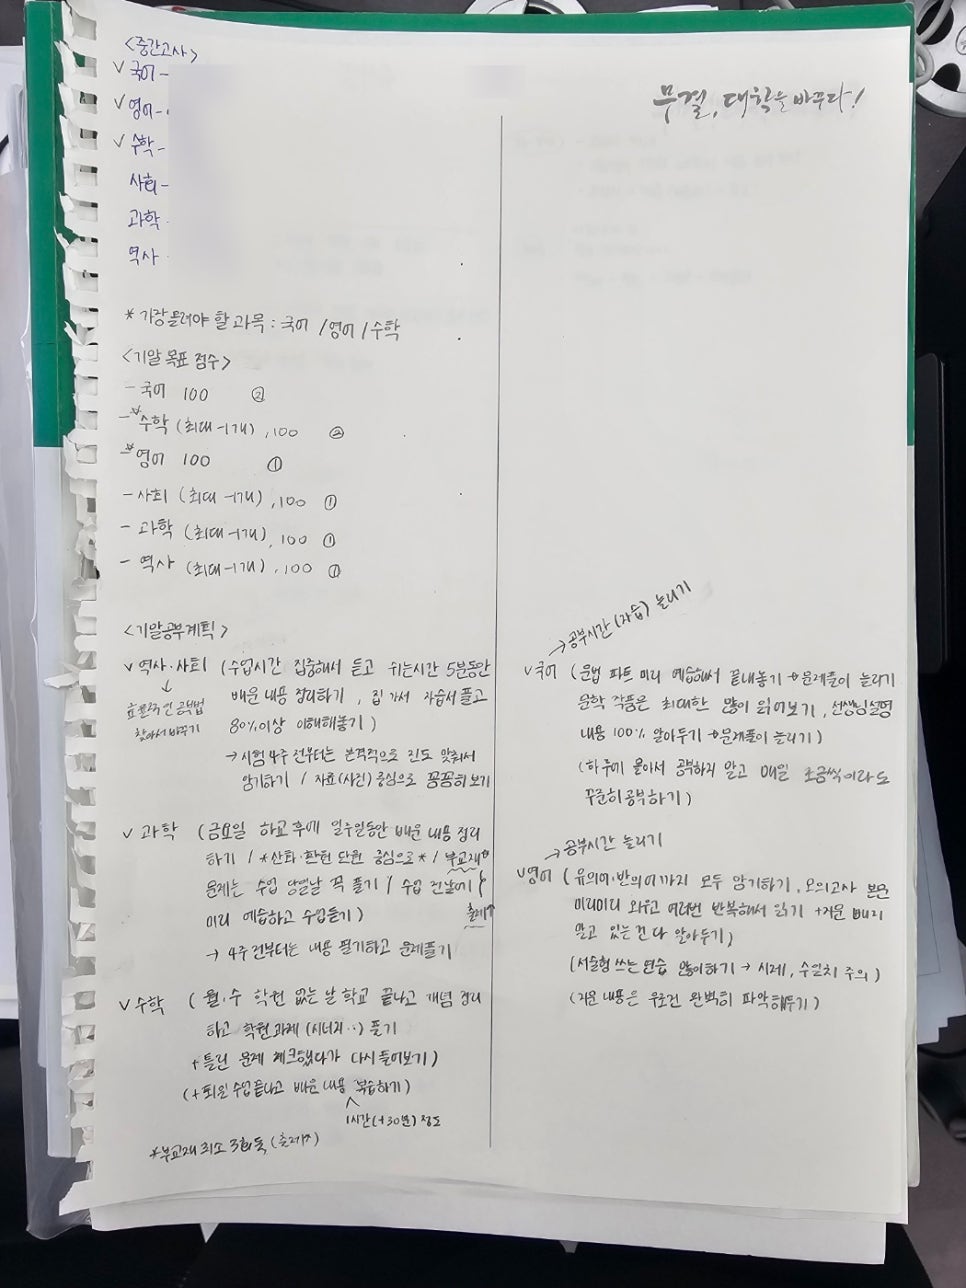 <중간고사>
∨ 국어 -
∨ 영어 -
∨ 수학 -
사회 -
과학 -
역사
* 가장 올려야 할 과목 : 국어 / 영어 / 수학
<기말 목표 점수>
- 국어 100 ②
- *수학 (최대 -1개), 100 ②
- *영어 100 ①
- 사회 (최대 -1개), 100 ①
- 과학 (최대 -1개), 100 ①
- 역사 (최대 -1개), 100 ①
<기말공부계획>
∨ 역사·사회 (수업시간 집중해서 듣고 쉬는시간 5분동안
배운 내용 정리하기, 집 가서 자습서 풀고
80% 이상 이해해놓기)
↓
효율적인 공부법
찾아서 바꾸기
→ 시험 4주 전부터는 본격적으로 진도 맞춰서
암기하기 / 자료(사진) 중심으로 꼼꼼히 보기
∨ 과학 (금요일 하교 후에 일주일동안 배운 내용 정리
하기 / *산화·환원 단원 중심으로* / 부교재
문제는 수업 당일날 꼭 풀기 / 수업 전날에
미리 예습하고 수업듣기)
출제↑
→ 4주 전부터는 내용 필기하고 문제풀기
∨ 수학 (월, 수 학원 없는 날 학교 끝나고 개념 정리
하고 학원 과제 (시너지··) 풀기
+ 틀린 문제 체크했다가 다시 풀어보기)
(+ 퇴원 수업 끝나고 배운 내용 복습하기)
1시간(+30분) 정도
*부교재 최소 3회독 (출제↑)
무결, 대학을 바꾸다!
→ 공부시간 (자습) 늘리기
∨ 국어 (문법 파트 미리 예습해서 끝내놓기 + 문제풀이 늘리기
문학 작품은 최대한 많이 읽어보기, 선생님 설명
내용 100% 알아두기 + 문제풀이 늘리기)
(하루에 몰아서 공부하지 말고 매일 조금씩이라도
꾸준히 공부하기)
→ 공부시간 늘리기
∨ 영어 (유의어·반의어까지 모두 암기하기, 모의고사 본문
미리미리 외우고 여러번 반복해서 읽기 +
말고 있는 건 다 알아두기)
(서술형 쓰는 연습 많이하기 → 시제, 수일치 주의)
(배운 내용은 무조건 완벽히 파악해두기)